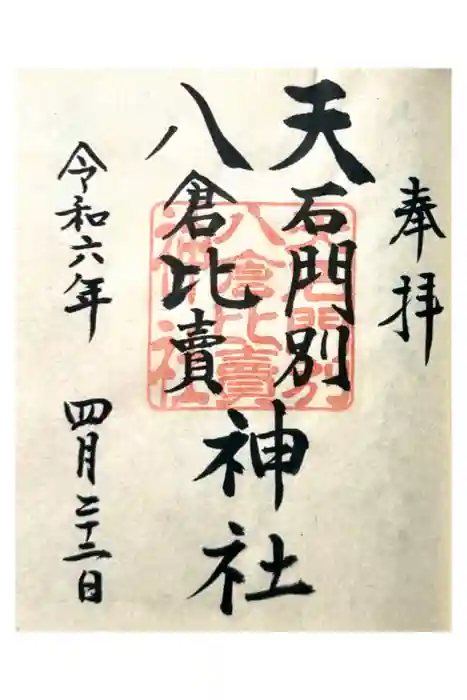 奉拝
天石門別
八倉比賣
神社
令和六年
四月二十二日
天石門別
八倉比賣
神社